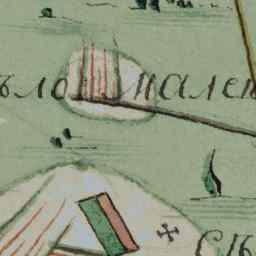 ѣло мален
сѣ